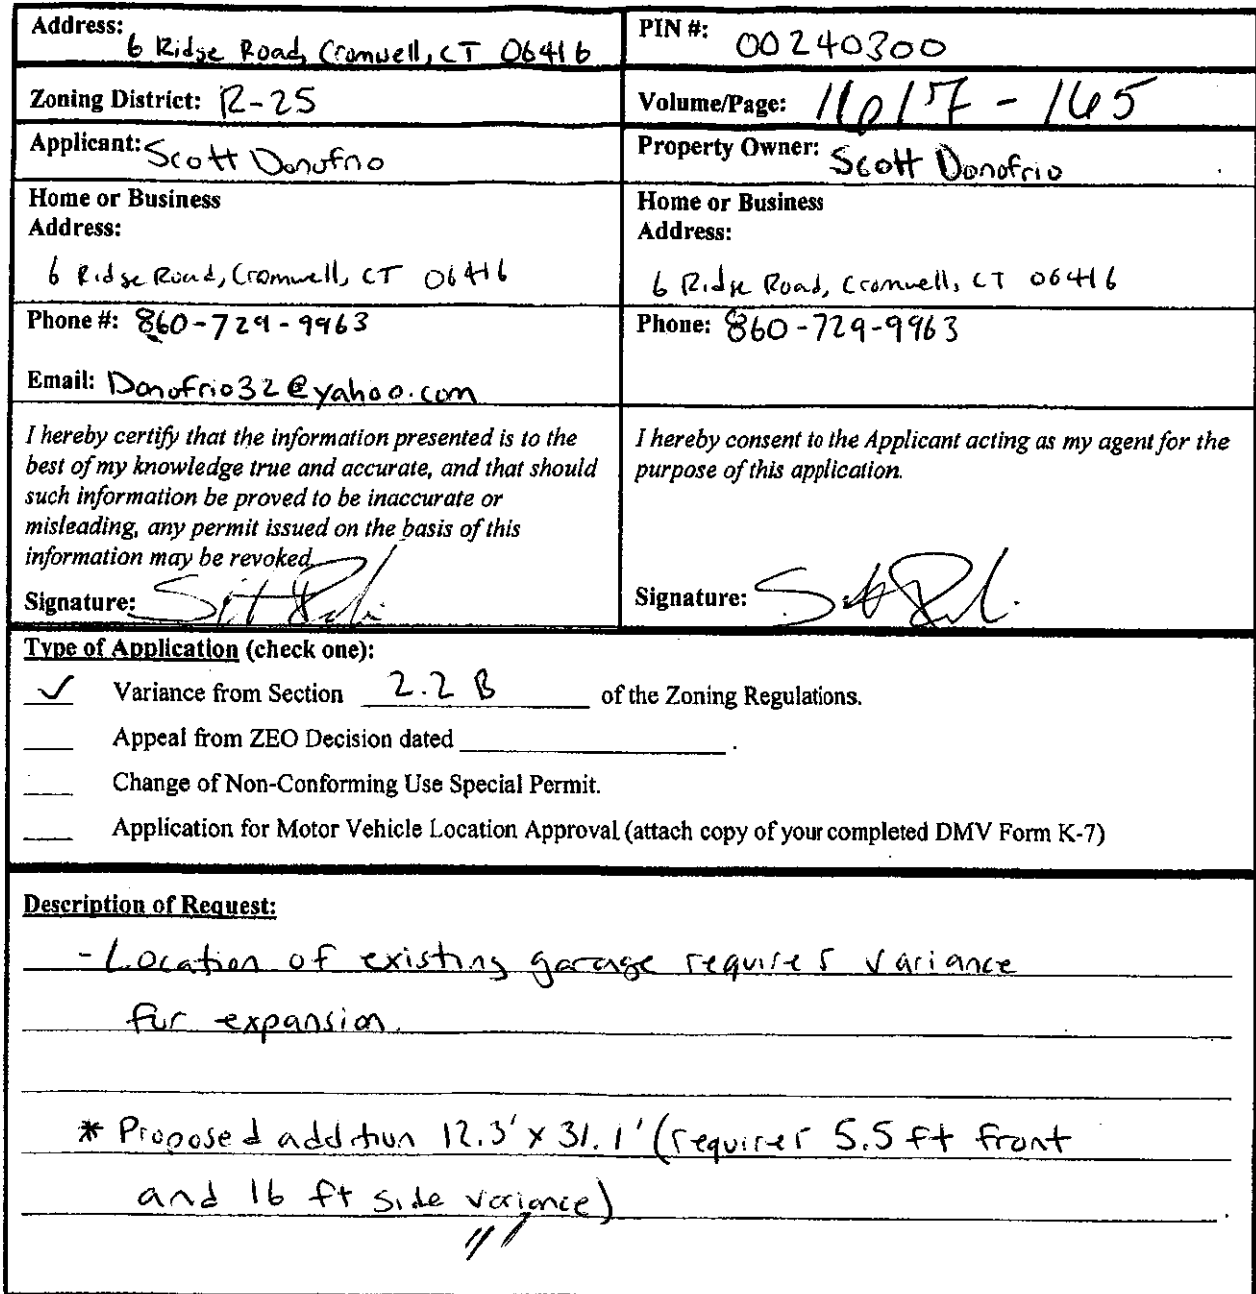 Address: 6 Ridge Road, Cromwell, CT 06416
PIN #: 00240300
Zoning District: R-25
Volume/Page: 1617 - 165
Applicant: Scott Donofrio
Property Owner: Scott Donofrio
Home or Business
Address:
6 Ridge Road, Cromwell, CT 06416
Home or Business
Address:
6 Ridge Road, Cromwell, CT 06416
Phone #: 860-729-9963
Email: Donofrio32@yahoo.com
Phone: 860-729-9963
I hereby certify that the information presented is to the
best of my knowledge true and accurate, and that should
such information be proved to be inaccurate or
misleading, any permit issued on the basis of this
information may be revoked.
Signature:
I hereby consent to the Applicant acting as my agent for the
purpose of this application.
Signature:
Type of Application (check one):
✓ Variance from Section 2.2 B of the Zoning Regulations.
Appeal from ZEO Decision dated ____.
Change of Non-Conforming Use Special Permit.
Application for Motor Vehicle Location Approval (attach copy of your completed DMV Form K-7)
Description of Request:
- Location of existing garage requires variance
for expansion.
* Proposed addition 12.3' x 31.1' (requires 5.5 ft front
and 16 ft side variance)